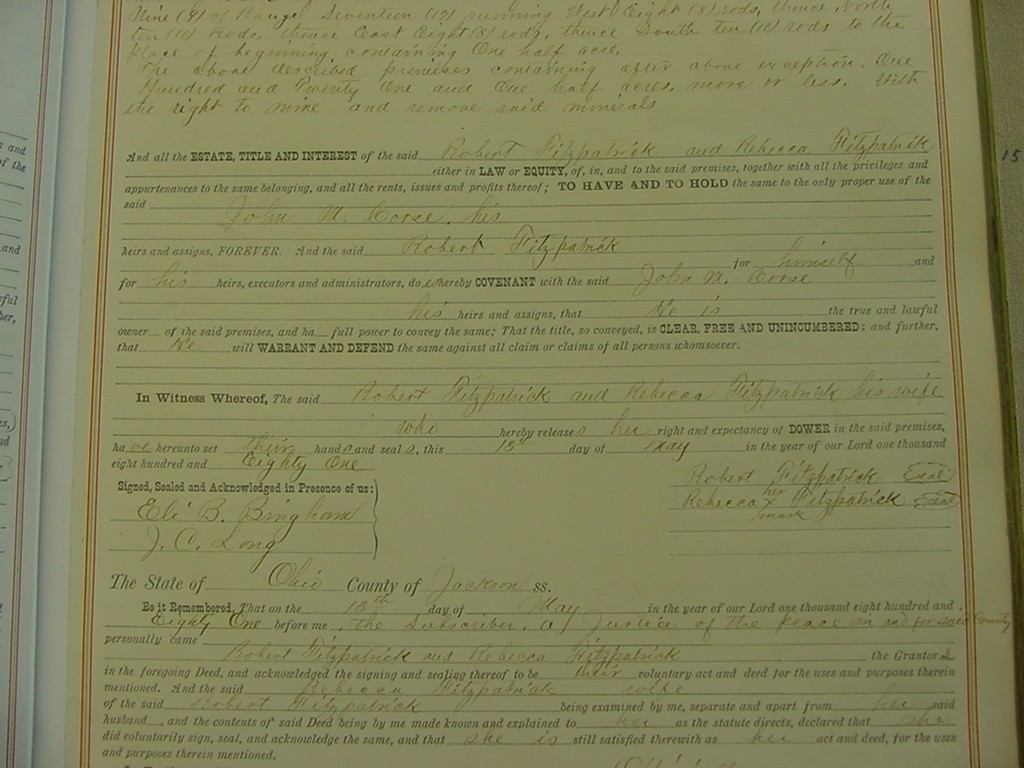 Nine (9) of Range Seventeen (17) running West Eight (8) rods, thence North
ten (10) Rods, thence East Eight (8) rods, thence South ten (10) rods to the
place of beginning, containing One half acre.
The above described premises containing after above exception. One
Hundred and Twenty One and One half acres, more or less. With
the right to mine and remove said minerals
And all the ESTATE, TITLE AND INTEREST of the said Robert Fitzpatrick and Rebecca Fitzpatrick
either in LAW or EQUITY, of, in, and to the said premises, together with all the privileges and
appurtenances to the same belonging, and all the rents, issues and profits thereof; TO HAVE AND TO HOLD the same to the only proper use of the
said John M. Corse, his
heirs and assigns, FOREVER. And the said Robert Fitzpatrick
for himself and
for his heirs, executors and administrators, does hereby COVENANT with the said John M. Corse
his heirs and assigns, that He is the true and lawful
owner of the said premises, and ha full power to convey the same; That the title, so conveyed, is CLEAR, FREE AND UNINCUMBERED; and further,
that He will WARRANT AND DEFEND the same against all claim or claims of all persons whomsoever.
In Witness Whereof, The said Robert Fitzpatrick and Rebecca Fitzpatrick his wife
who hereby releases her right and expectancy of DOWER in the said premises,
ha ve hereunto set their hands and seals, this 13th day of May in the year of our Lord one thousand
eight hundred and Eighty One
Robert Fitzpatrick Seal
Signed, Sealed and Acknowledged in Presence of us:
Rebecca her x mark Fitzpatrick Seal
Eli B. Bingham
J. C. Long
The State of Ohio County of Jackson ss.
Be it Remembered, That on the 13th day of May in the year of our Lord one thousand eight hundred and
Eighty One before me, The Subscriber, a Justice of the peace in and for said County
personally came
Robert Fitzpatrick and Rebecca Fitzpatrick the Grantors
in the foregoing Deed, and acknowledged the signing and sealing thereof to be their voluntary act and deed for the uses and purposes therein
mentioned. And the said Rebecca Fitzpatrick wife
of the said Robert Fitzpatrick being examined by me, separate and apart from her said
husband, and the contents of said Deed being by me made known and explained to her as the statute directs, declared that she
did voluntarily sign, seal, and acknowledge the same, and that she is still satisfied therewith as her act and deed, for the uses
and purposes therein mentioned.
15